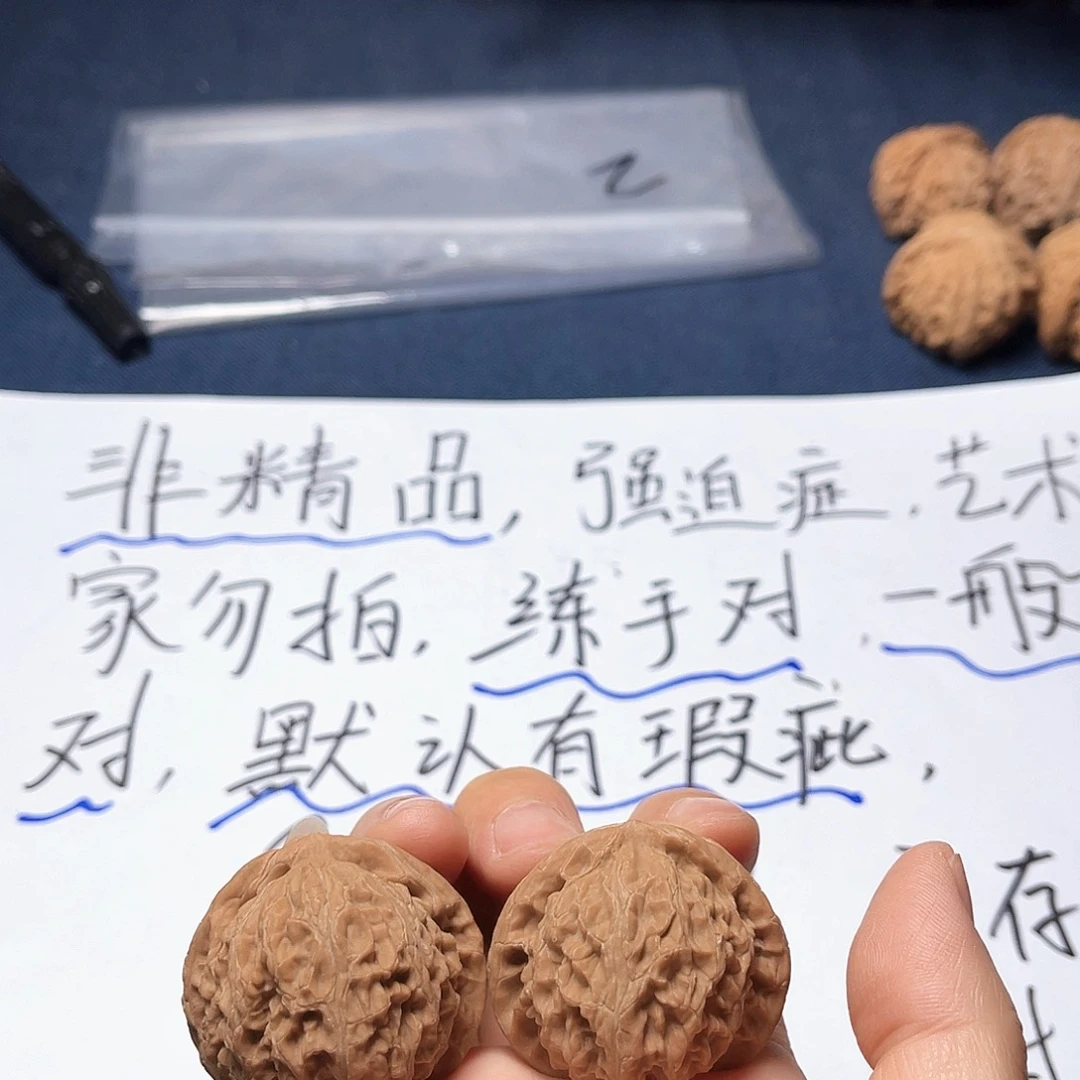 乙
非精品，强迫症．艺术
家勿拍．练手对．一般
对，默认有瑕疵，
存